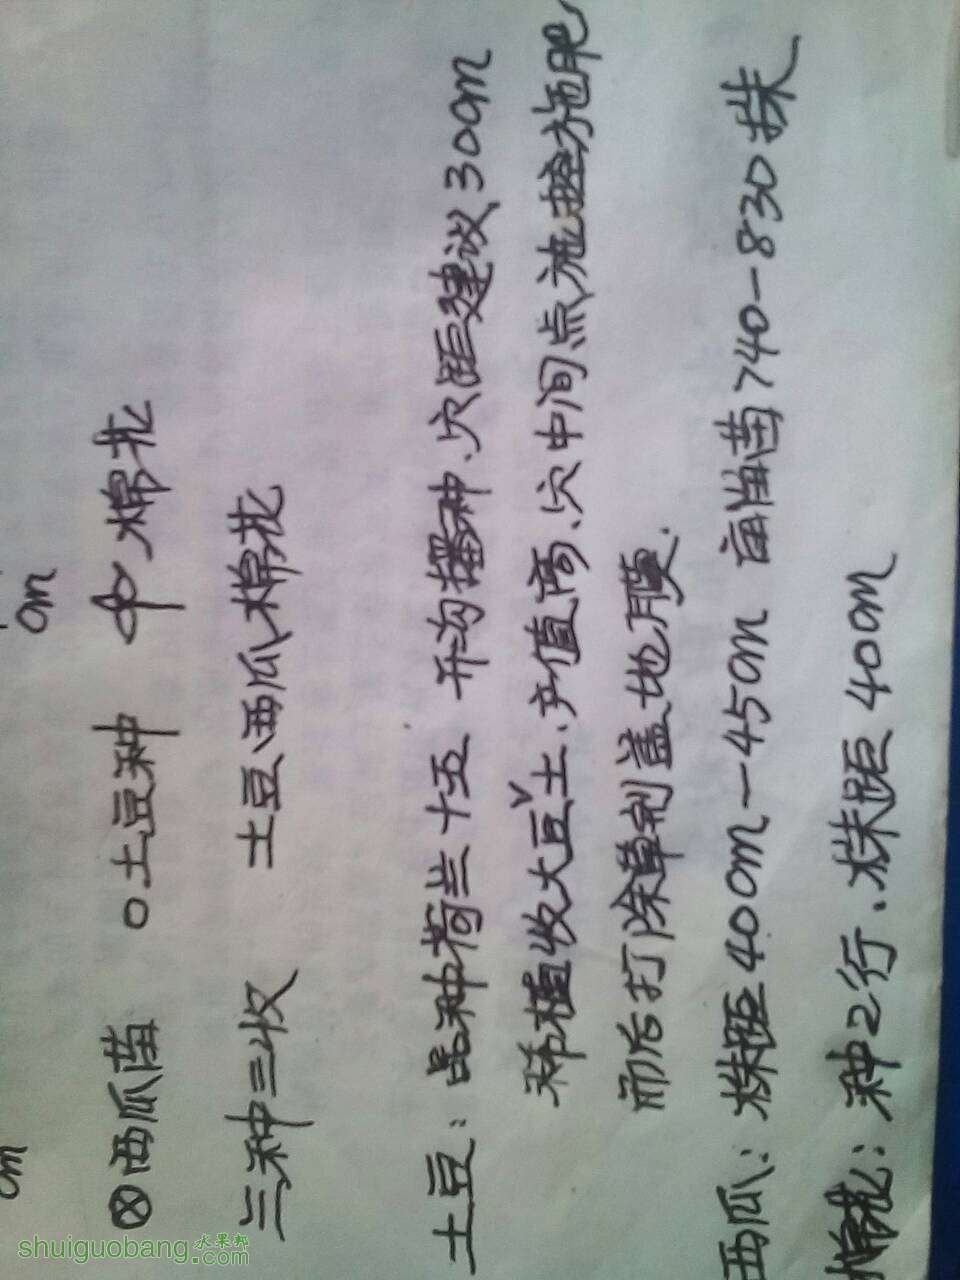 cm
cm
⊗西瓜苗 ○土豆种 棉花
三种三收 土豆、西瓜、棉花
土豆：品种荷兰十五 开沟播种、穴距建议30cm
稀植收大豆土、产值高、穴中间点施控施肥
而后打除草剂盖地膜.
西瓜：株距40cm-45cm 亩留苗740-830株
棉花：种2行、株距40cm
shuiguobang.com
水果邦